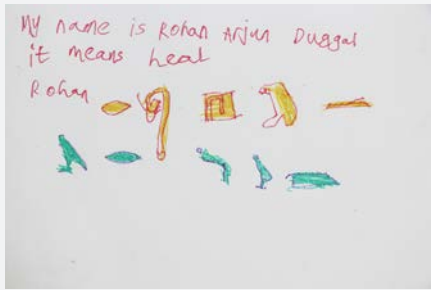 My name is Rohan Arjun Duggal
it means heal
Rohan